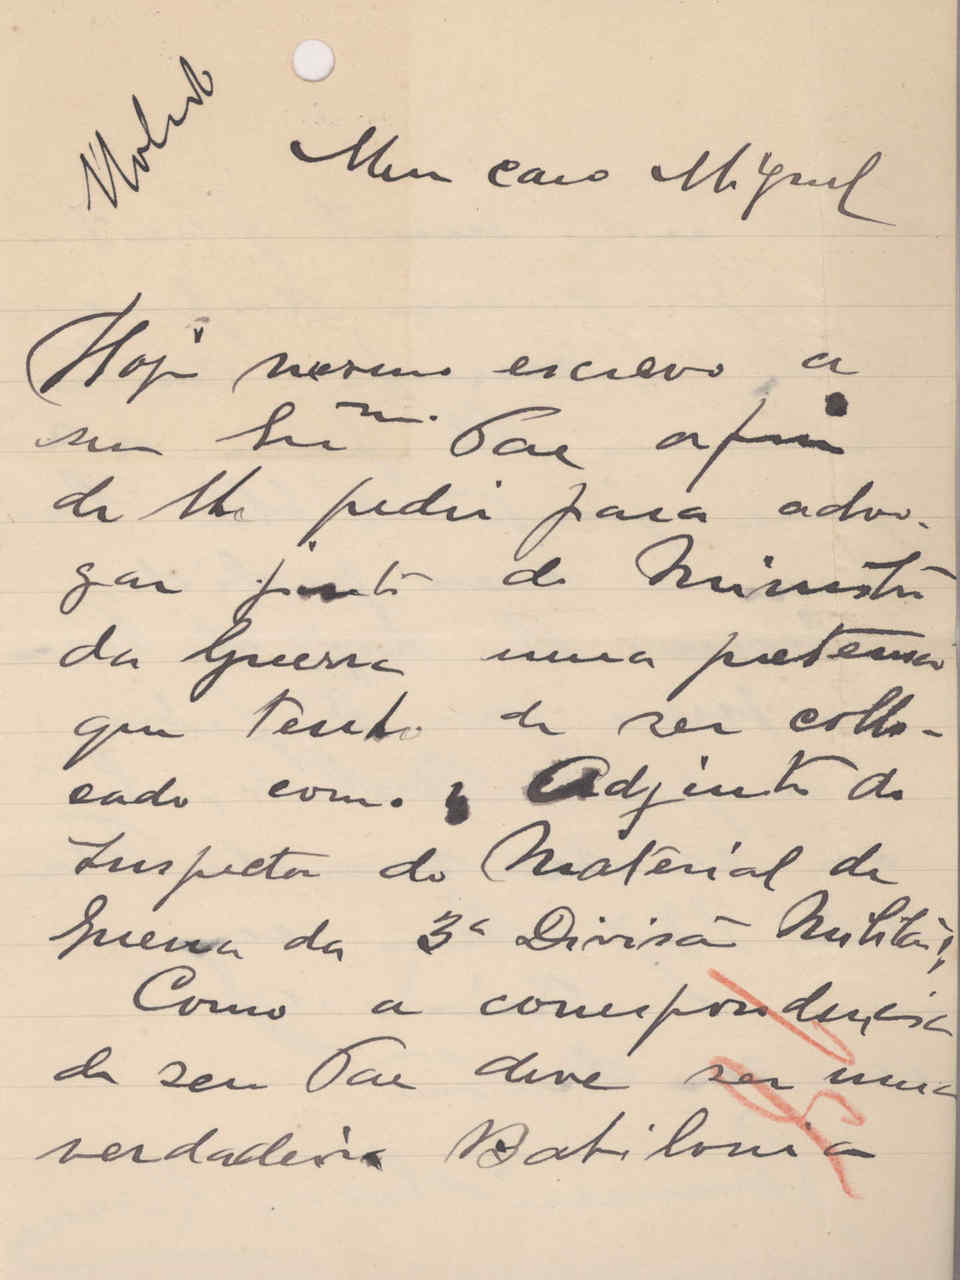 Meu caro Miguel
Hoje mesmo escrevo a
seu Exmo. Pae afim
de lhe pedir para advo-
gar junto do Ministro
da Guerra uma pretensão
que tenho de ser collo-
cado como Adjunto do
Inspector do Material de
Guerra da 3ª Divisão Militar,
Como a correspondencia
de seu Pae deve ser uma
verdadeira Babilonia